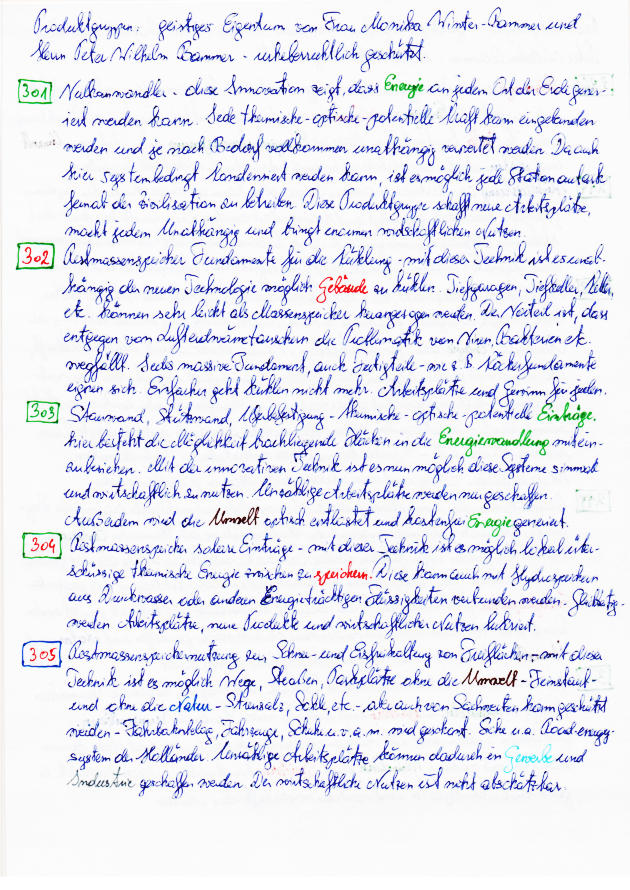 Produktgruppen: geistiges Eigentum von Frau Monika Winter-Bammer und
Herrn Peter Wilhelm Bammer - urheberrechtlich geschützt.
301 Vulkanwandler - diese Innovation zeigt, dass Energie an jedem Ort der Erde gener-
iert werden kann. Jede thermische-optische-potentielle Kraft kann eingebunden
werden und je nach Bedarf vollkommen unabhängig verwertet werden. Da auch
hier systembedingt kondensiert werden kann, ist es möglich jede Station autark
fernab der Zivilisation zu betreiben. Diese Produktgruppe schafft neue Arbeitsplätze,
macht jedem Unabhängig und bringt enormen wirtschaftlichen Nutzen.
302 Restmassenspeicher Fundamente für die Kühlung - mit dieser Technik ist es unab-
hängig der neuen Technologie möglich Gebäude zu kühlen. Tiefgaragen, Tiefkeller, Keller,
etc. können sehr leicht als Massenspeicher herangezogen werden. Der Vorteil ist, dass
entgegen von Lufterdwärmetauschern die Problematik von Viren, Bakterien etc.
wegfällt. Jedes massive Fundament, auch Fertigteile - wie z. B. Köcherfundamente
eignen sich. Einfacher geht kühlen nicht mehr. Arbeitsplätze und Gewinn für jeden.
303 Stauwand, Stützwand, Uferbefestigung - thermische - optische - potentielle Einträge.
hier besteht die Möglichkeit brachliegende Flächen in die Energiewandlung mit ein-
zubeziehen. Mit der innovativen Technik ist es nun möglich diese Systeme sinnvoll
und wirtschaftlich zu nutzen. Unzählige Arbeitsplätze werden neu geschaffen.
Außerdem wird die Umwelt optisch entlastet und kostenfrei Energie generiert.
304 Restmassenspeicher solare Einträge - mit dieser Technik ist es möglich lokal über-
schüssige thermische Energie zwischen zu speichern. Diese kann auch mit Hydrospeichern
aus Druckwasser oder anderen Energieträchtigen Flüssigkeiten verbunden werden. Gleichzeitig
werden Arbeitsplätze, neue Produkte und wirtschaftlicher Nutzen lukriert.
305 Restmassenspeichernutzung zur Schnee- und Eisfreihaltung von Freiflächen - mit dieser
Technik ist es möglich Wege, Straßen, Parkplätze ohne die Umwelt - Feinstaub -
und ohne die Natur - Streusalz, Sohle, etc. - aber auch von Sachwerten kann geschützt
werden - Fahrbahnbelag, Fahrzeuge, Schuhe u.v.a.m. wird geschont. Siehe u.a. Road-energy-
system der Holländer. Unzählige Arbeitsplätze können dadurch in Gewerbe und
Industrie geschaffen werden. Der wirtschaftliche Nutzen ist nicht abschätzbar.